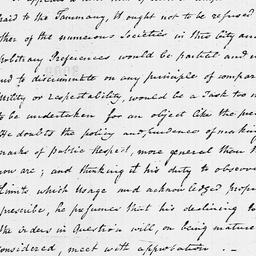 said to the Tammany, it ought not to be refused
ther of the numerous Societies in this City and
Arbitrary Preferences would be partial and
to discriminate on any principle of compar
Utility or respectability, would be a Task too
to be undertaken for an object like the pre
He doubts the policy and prudence of making
marks of public Respect, more general than
now are; and thinking it his duty to observe
Limits which Usage and acknowledged prop
prescribe, he presumes that his declining to
the orders in Question will, on being mature
considered, meet with approbation. -